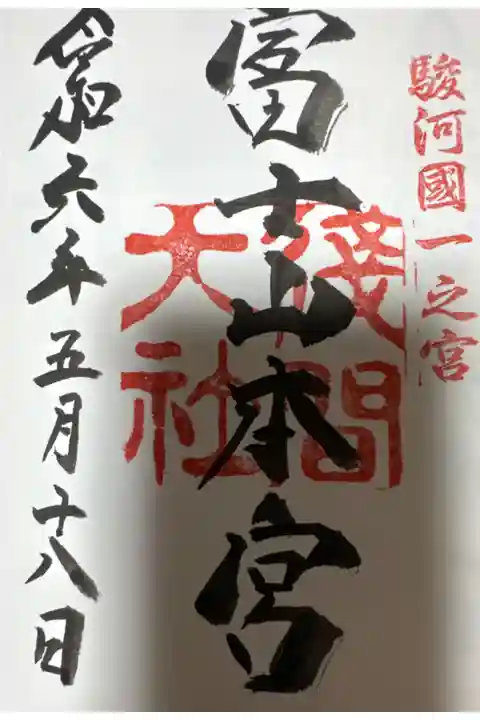 駿河國一之宮
富士山本宮
淺間大社
令和六年五月十八日